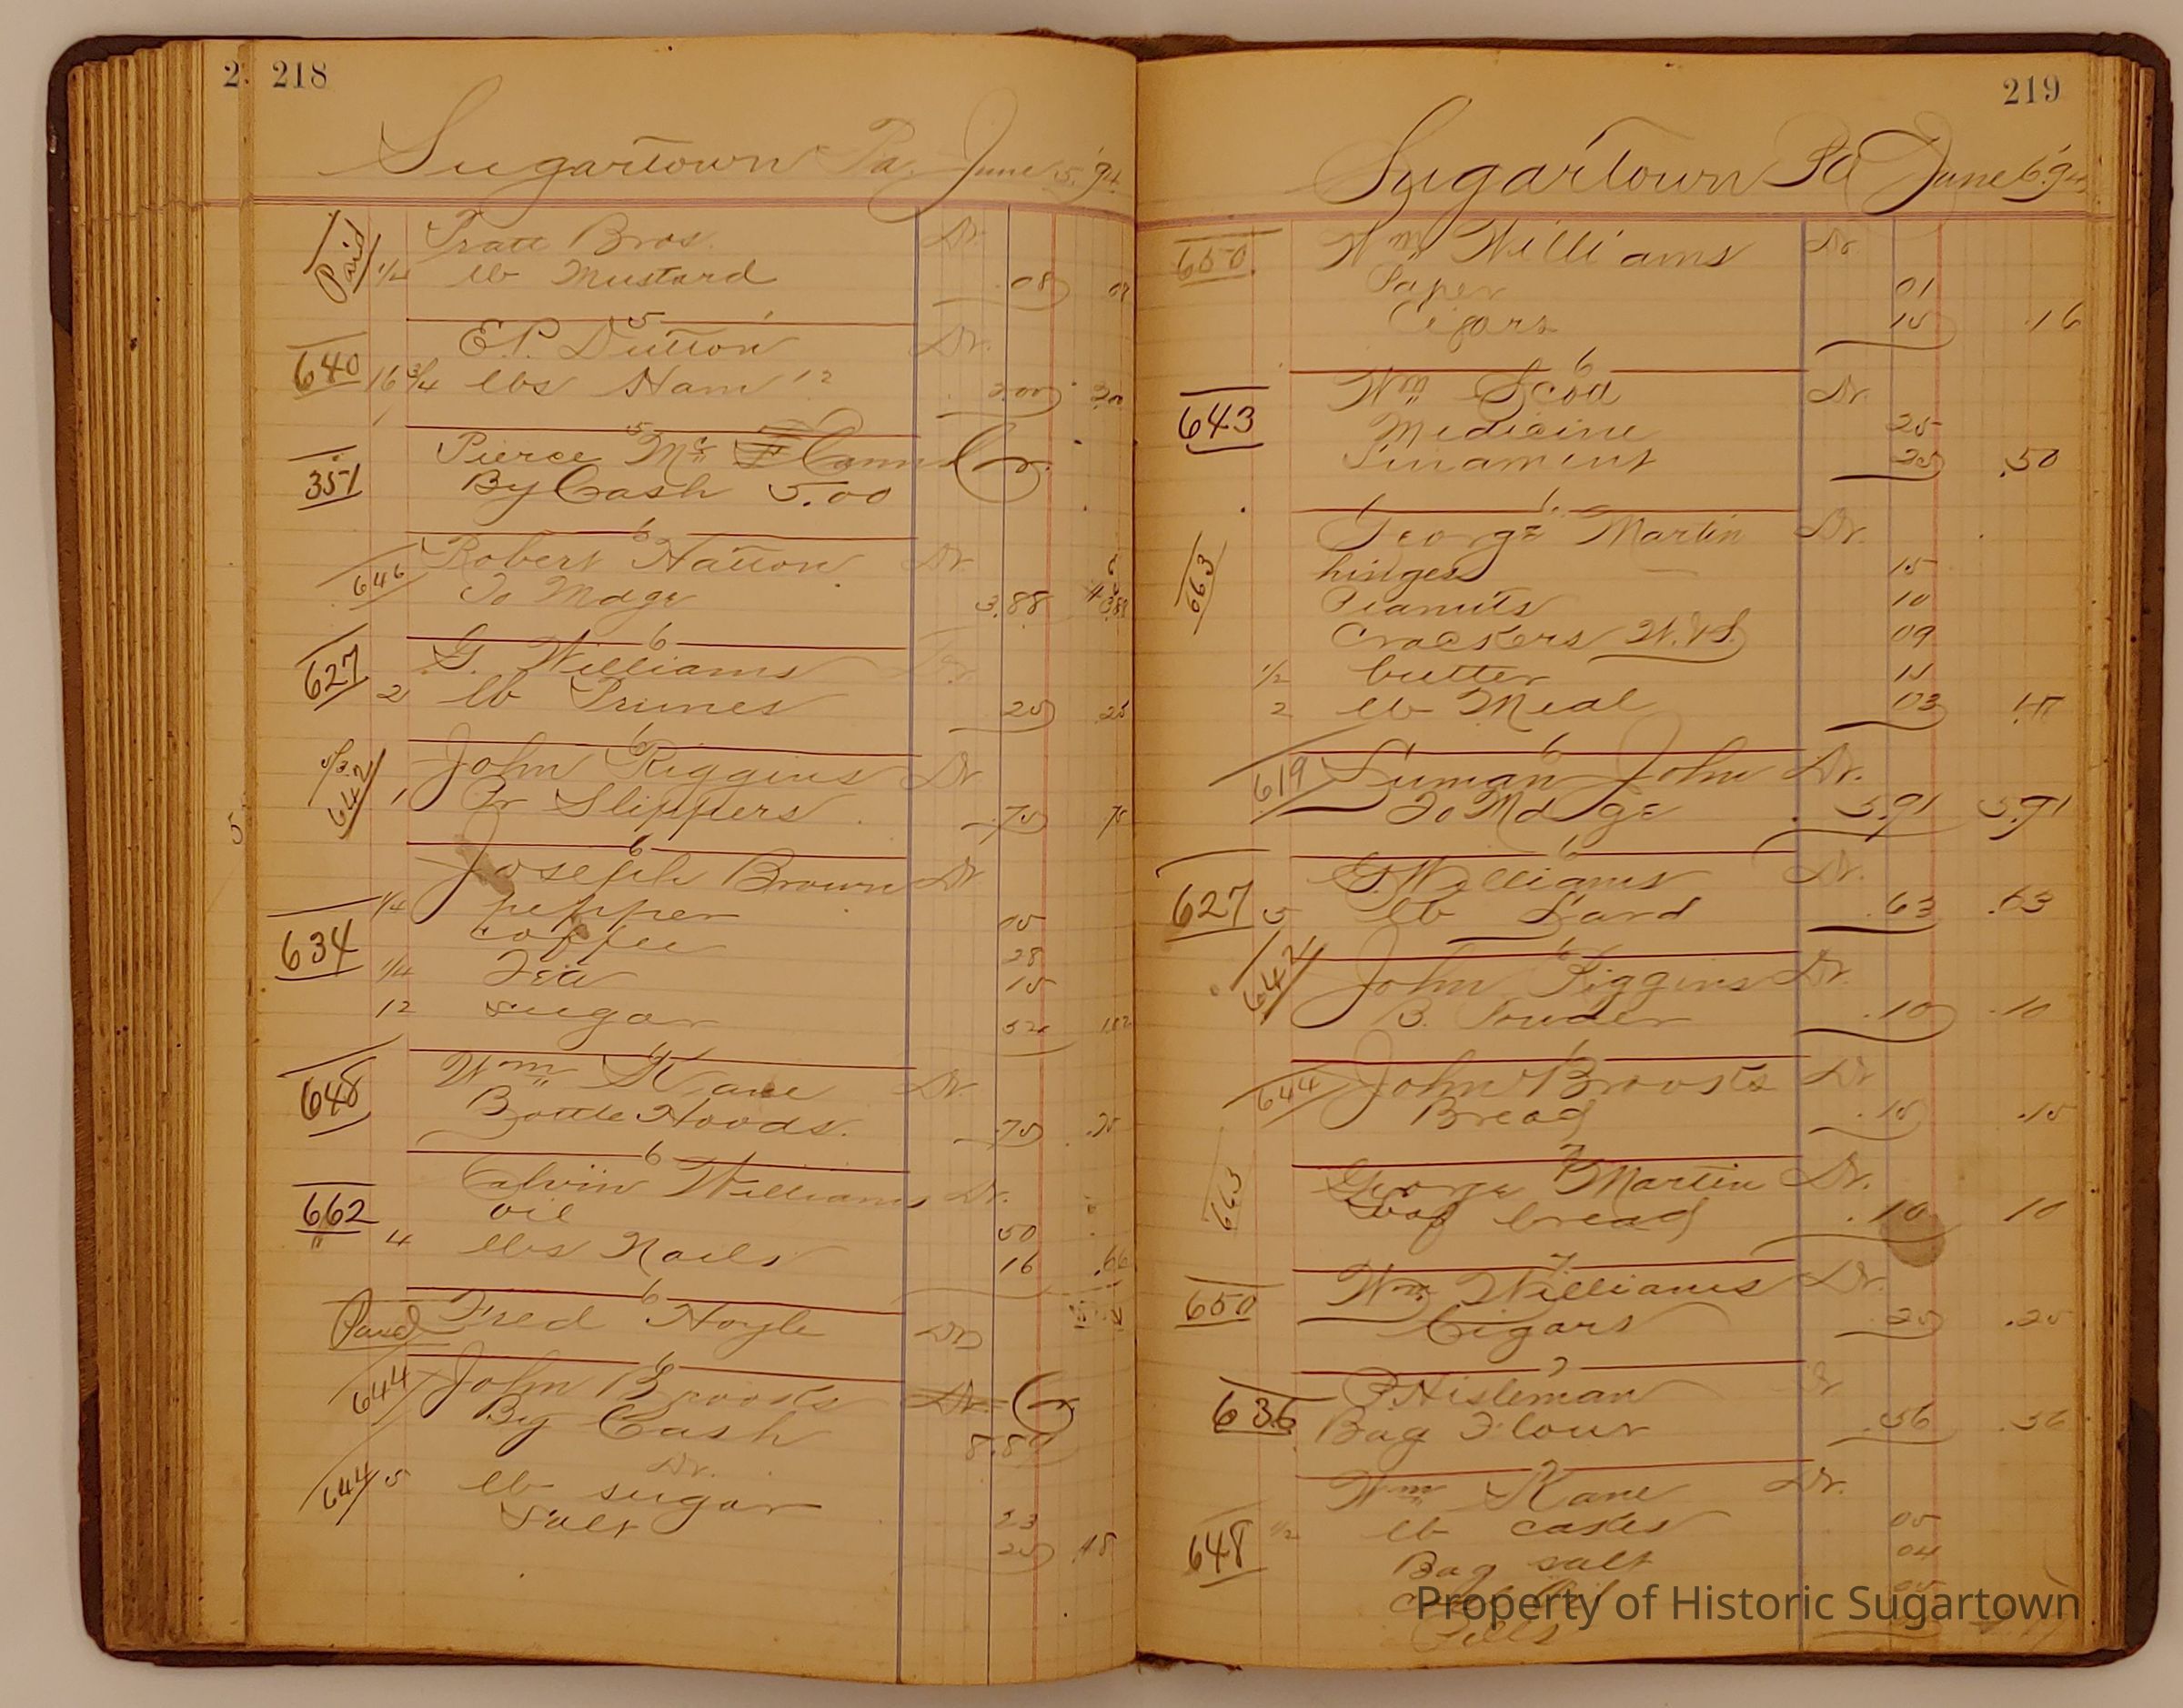 2 218
Sugartown Pa. June 5, '94
Paid Pratt Bros. Dr.
1/4 lb Mustard .08 08
5
640 E.P. Dutton Dr.
16 3/4 lbs Ham 12 2.00 2.00
5
351 Pierce Mc Cann Cr.
By Cash 5.00
6
646 Robert Hatton Dr
To Mdge 3.88 3.88
6
627 G. Williams
2 lb Prunes 25 25
6
642 John Riggins Dr
1 Pr Slippers .75 75
6
Joseph Brown Dr
1/4 pepper 05
634 coffee 28
1/4 Tea 15
12 sugar 54 1.02
6
648 Wm Kane Dr.
Bottle Hoods. .75 .75
6
662 Calvin Williams Dr.
oil 50
4 lbs Nails 16 .66
6
Paid Fred Hoyle Dr
6
644 John Brooks Dr. Cr
By Cash 8.89
Dr.
644 5 lb sugar 23
Salt 25 .48
219
Sugartown Pa June 6 '94
650 Wm Williams Dr
Paper 01
Cigars 15 .16
6
643 Wm Scod Dr.
Medicine 25
Linament 25 .50
6
663 George Martin Dr.
hinges 15
Peanuts 10
Crackers W.&S. 09
1/2 butter 11
2 lb Meal 03
6
619 Suman John Dr.
To Mdge 5.91 5.91
6
627 G Williams Dr.
5 lb Lard .63 .63
6
642 John Riggins Dr.
B. Powder .10 .10
6
644 John Brooks Dr
Bread .15 .15
7
663 George Martin Dr.
Loaf bread .10 10
7
650 Wm. Williams Dr.
Cigars .25 .25
7
636 P. Hisleman Dr
Bag Flour .56 .56
7
Wm Kane Dr.
648 1/2 lb cakes 05
Bag salt 04
Pills
Property of Historic Sugartown